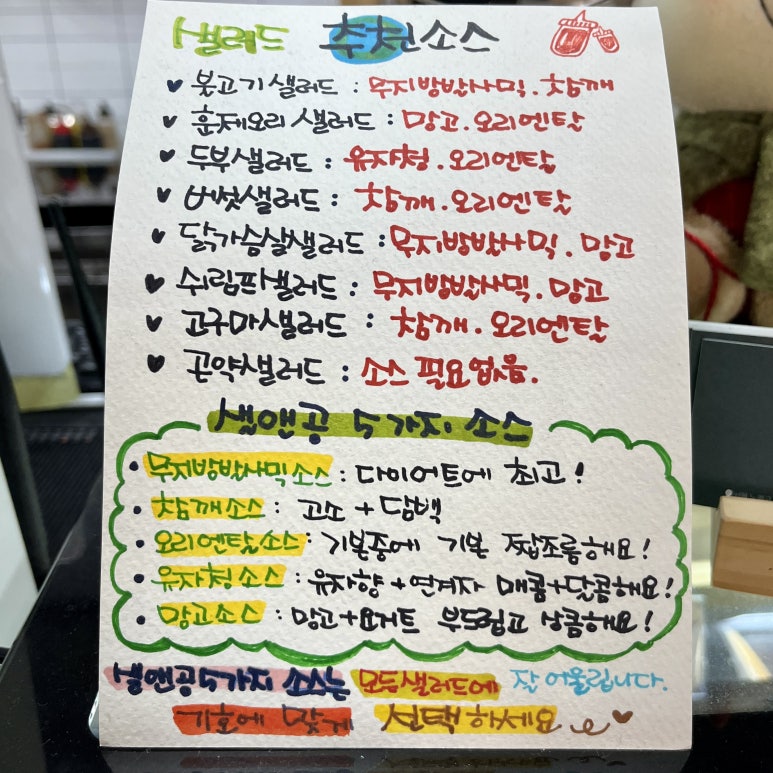 샐러드 추천소스
불고기샐러드 : 무지방발사믹. 참깨
훈제오리샐러드 : 망고. 오리엔탈
두부샐러드 : 유자청. 오리엔탈
버섯샐러드 : 참깨. 오리엔탈
닭가슴살샐러드 : 무지방발사믹. 망고
쉬림프샐러드 : 무지방발사믹. 망고
고구마샐러드 : 참깨. 오리엔탈
곤약샐러드 : 소스 필요없음.
샐앤공 5가지 소스
• 무지방발사믹소스 : 다이어트에 최고!
• 참깨소스 : 고소+담백
• 오리엔탈소스 : 기본중에 기본 짭조름해요!
• 유자청소스 : 유자향+연겨자 매콤+달콤해요!
• 망고소스 : 망고+요거트 부드럽고 상콤해요!
샐앤공5가지 소스는 모든샐러드에 잘 어울립니다.
기호에 맞게 선택하세요